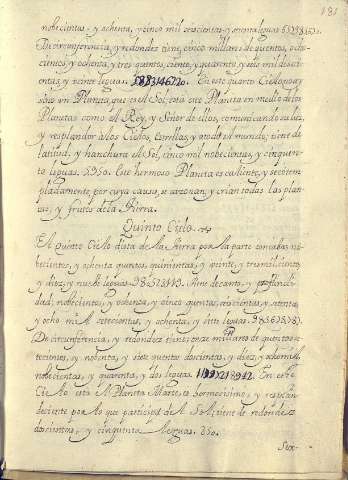 181
nobecientos, y ochenta, y cinco mil seiscientas y ochenta leguas
De circunferencia, y redondez tiene, cinco millares de quentos, ocho
cientos, y ochenta, y tres quentos, ciento, y quarenta, y seis mil duscien
tas, y veinte leguas. 5883146220. En este quarto Cielo, no ay
solo un Planeta, que es el Sol, está este Planeta en medio de los
Planetas como el Rey, y Señor de ellos, comunicando su luz,
y resplandor a los Cielos, Estrellas, y a todo el mundo; tiene de
latitud, y hanchura el Sol, cinco mil nobecientas, y cinquenta
leguas. 5950. Este hermoso Planeta es caliente, y seco tem
pladamente, por cuya causa, se sazonan, y crian todas las plan
tas, y frutos de la Tierra.
Quinto Cielo.
El quinto Cielo dista de la Tierra por la parte concaba no
becientos, y ochenta quentos, quinientas, y veinte, y tres mil ciento
y diez, y nuebe leguas. Tiene de canto, y profundi
dad; nobecientos, y ochenta, y cinco quentos, seiscientas, y setenta,
y ocho mil setecientas, y ochenta, y siete leguas.
De circunferencia, y redondez tiene; onze millares de quentos se
tecientos, y nobenta, y siete quentos doscientas, y diez, y ocho mil
nobecientas, y quarenta, y dos leguas. 11797218942. En este
Cielo está el Planeta Marte, es hermosisimo, y resplan
deciente por lo que participa del Sol; tiene de redondez
doscientas, y cinquenta leguas. 250.
Sex-